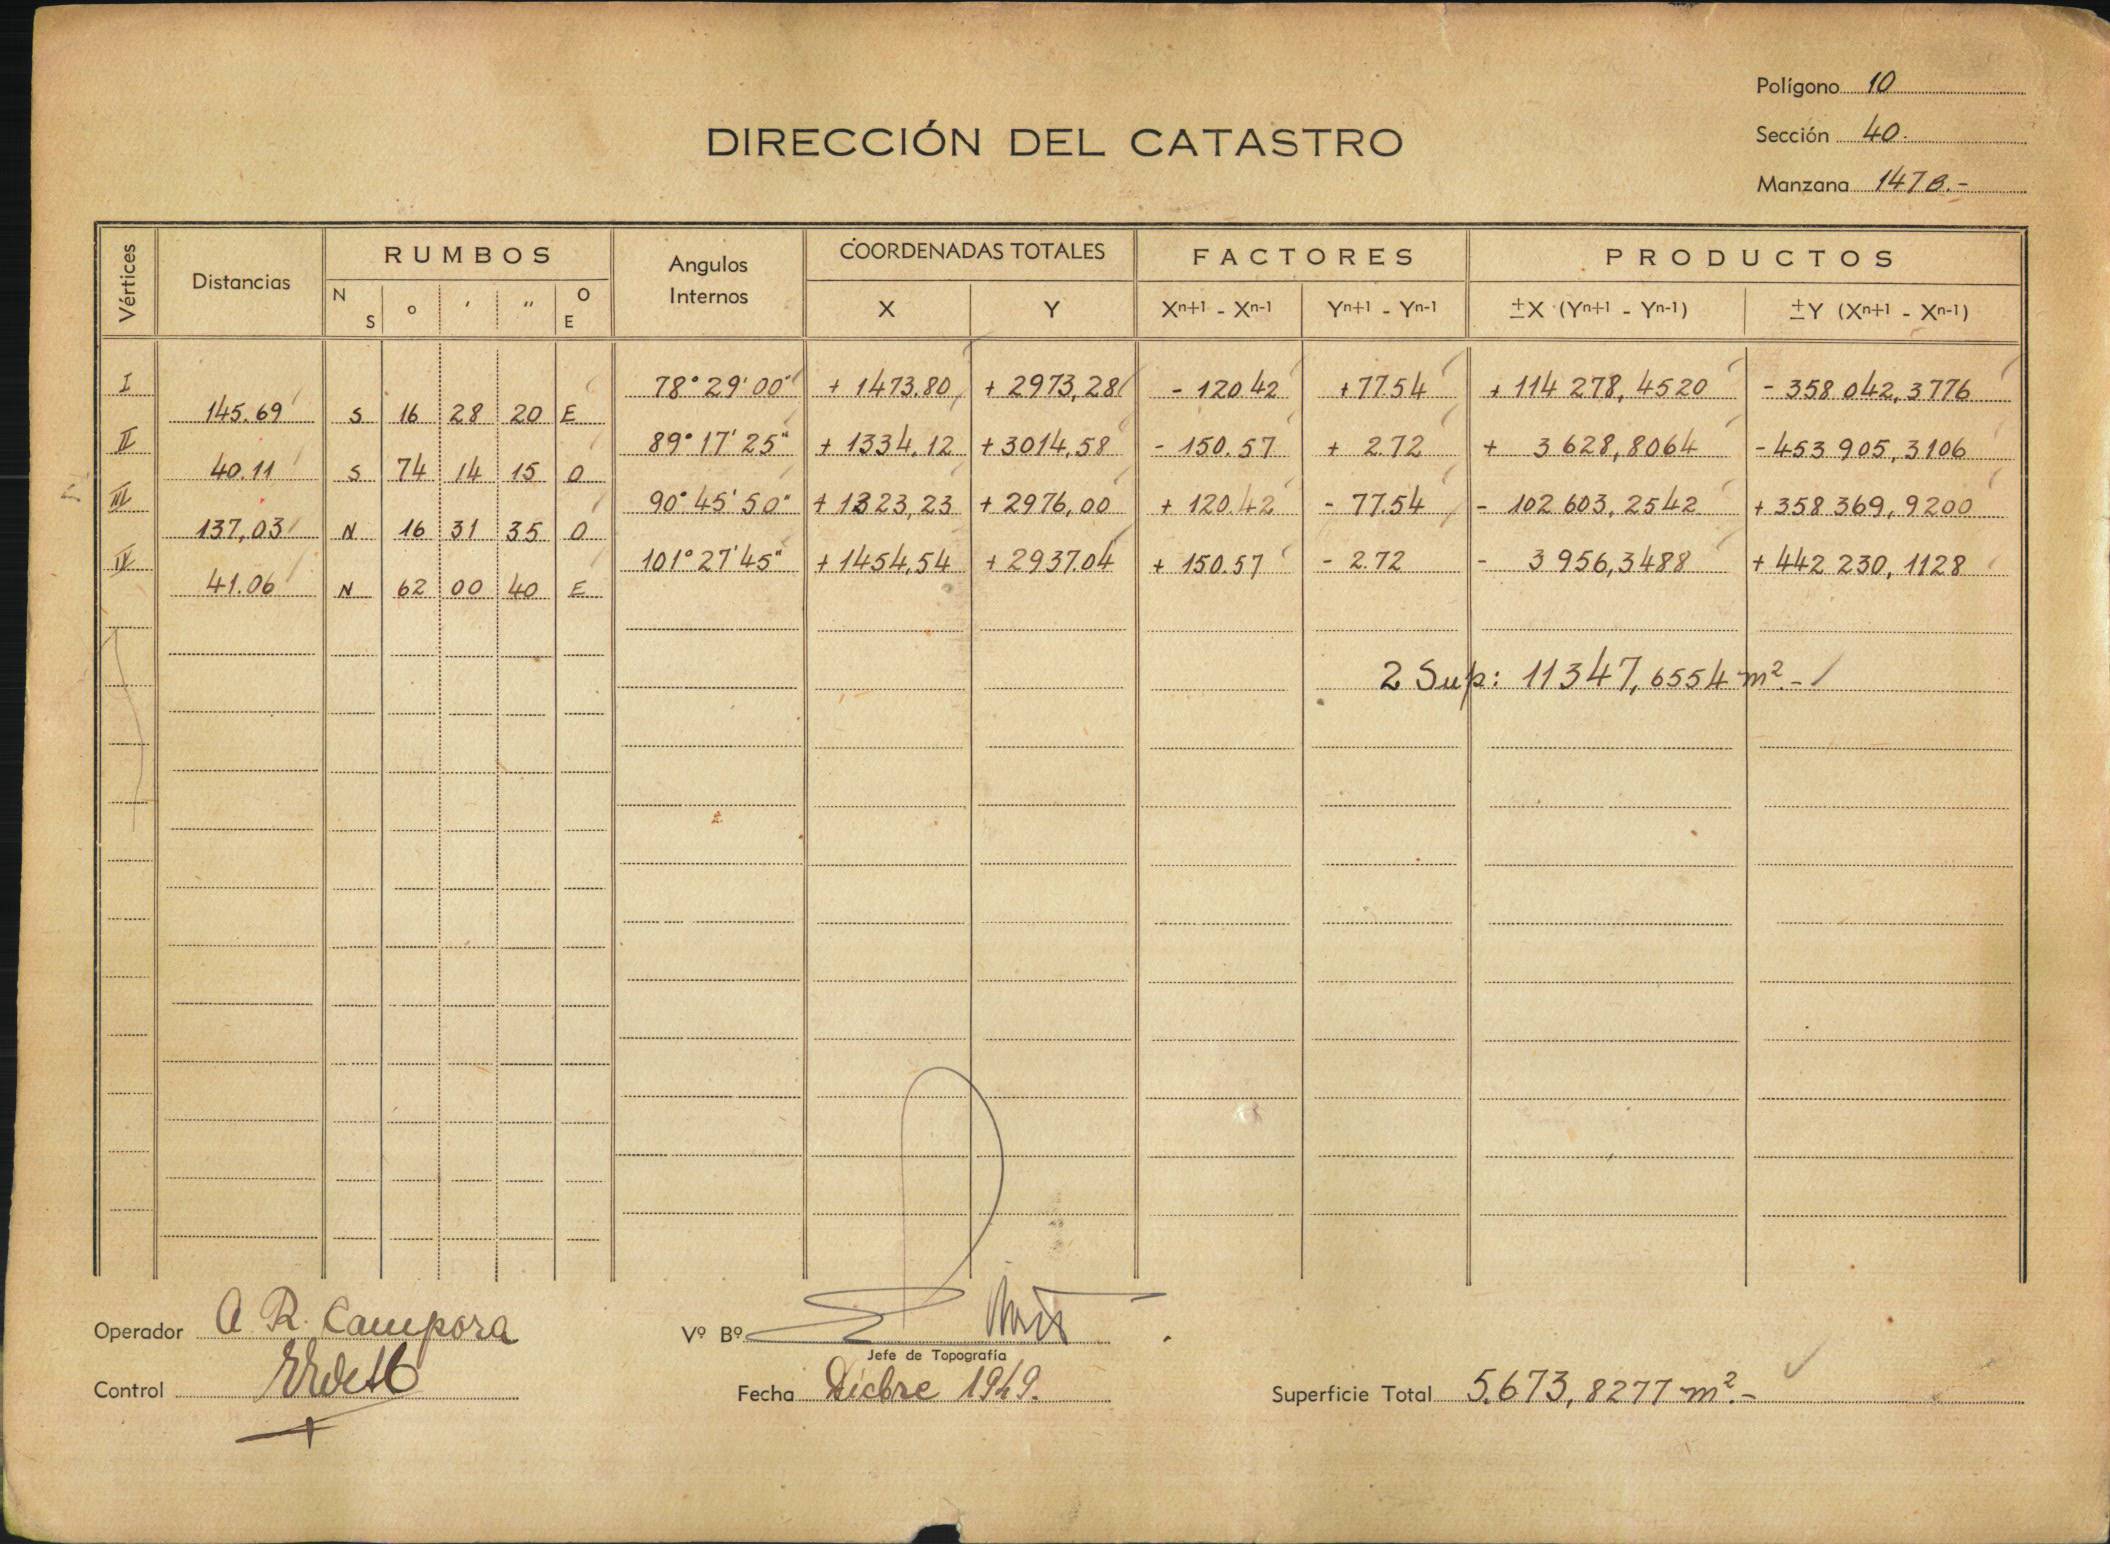 Polígono 10
DIRECCIÓN DEL CATASTRO
Sección 40.
Manzana 147B.-
Vértices Distancias RUMBOS Angulos Internos COORDENADAS TOTALES FACTORES PRODUCTOS
N S ° ' " O E X Y Xn+1 - Xn-1 Yn+1 - Yn-1 ±X (Yn+1 - Yn-1) ±Y (Xn+1 - Xn-1)
I 78° 29' 00" + 1473.80 + 2973,28 - 120.42 + 77.54 + 114 278,4520 - 358 042,3776
145.69 S 16 28 20 E
II 89° 17' 25" + 1334.12 + 3014,58 - 150.57 + 2.72 + 3 628,8064 - 453 905,3106
40.11 S 74 14 15 O
III 90° 45' 50" + 1323,23 + 2976,00 + 120.42 - 77.54 - 102 603,2542 + 358 369,9200
137,03 N 16 31 35 O
IV 101° 27' 45" + 1454,54 + 2937.04 + 150.57 - 2.72 - 3 956,3488 + 442 230,1128
41.06 N 62 00 40 E
2 Sup: 11347,6554 m².-
Operador A R. Campora
Vº Bº
Jefe de Topografía
Control
Fecha Dicbre 1949.
Superficie Total 5.673,8277 m².-